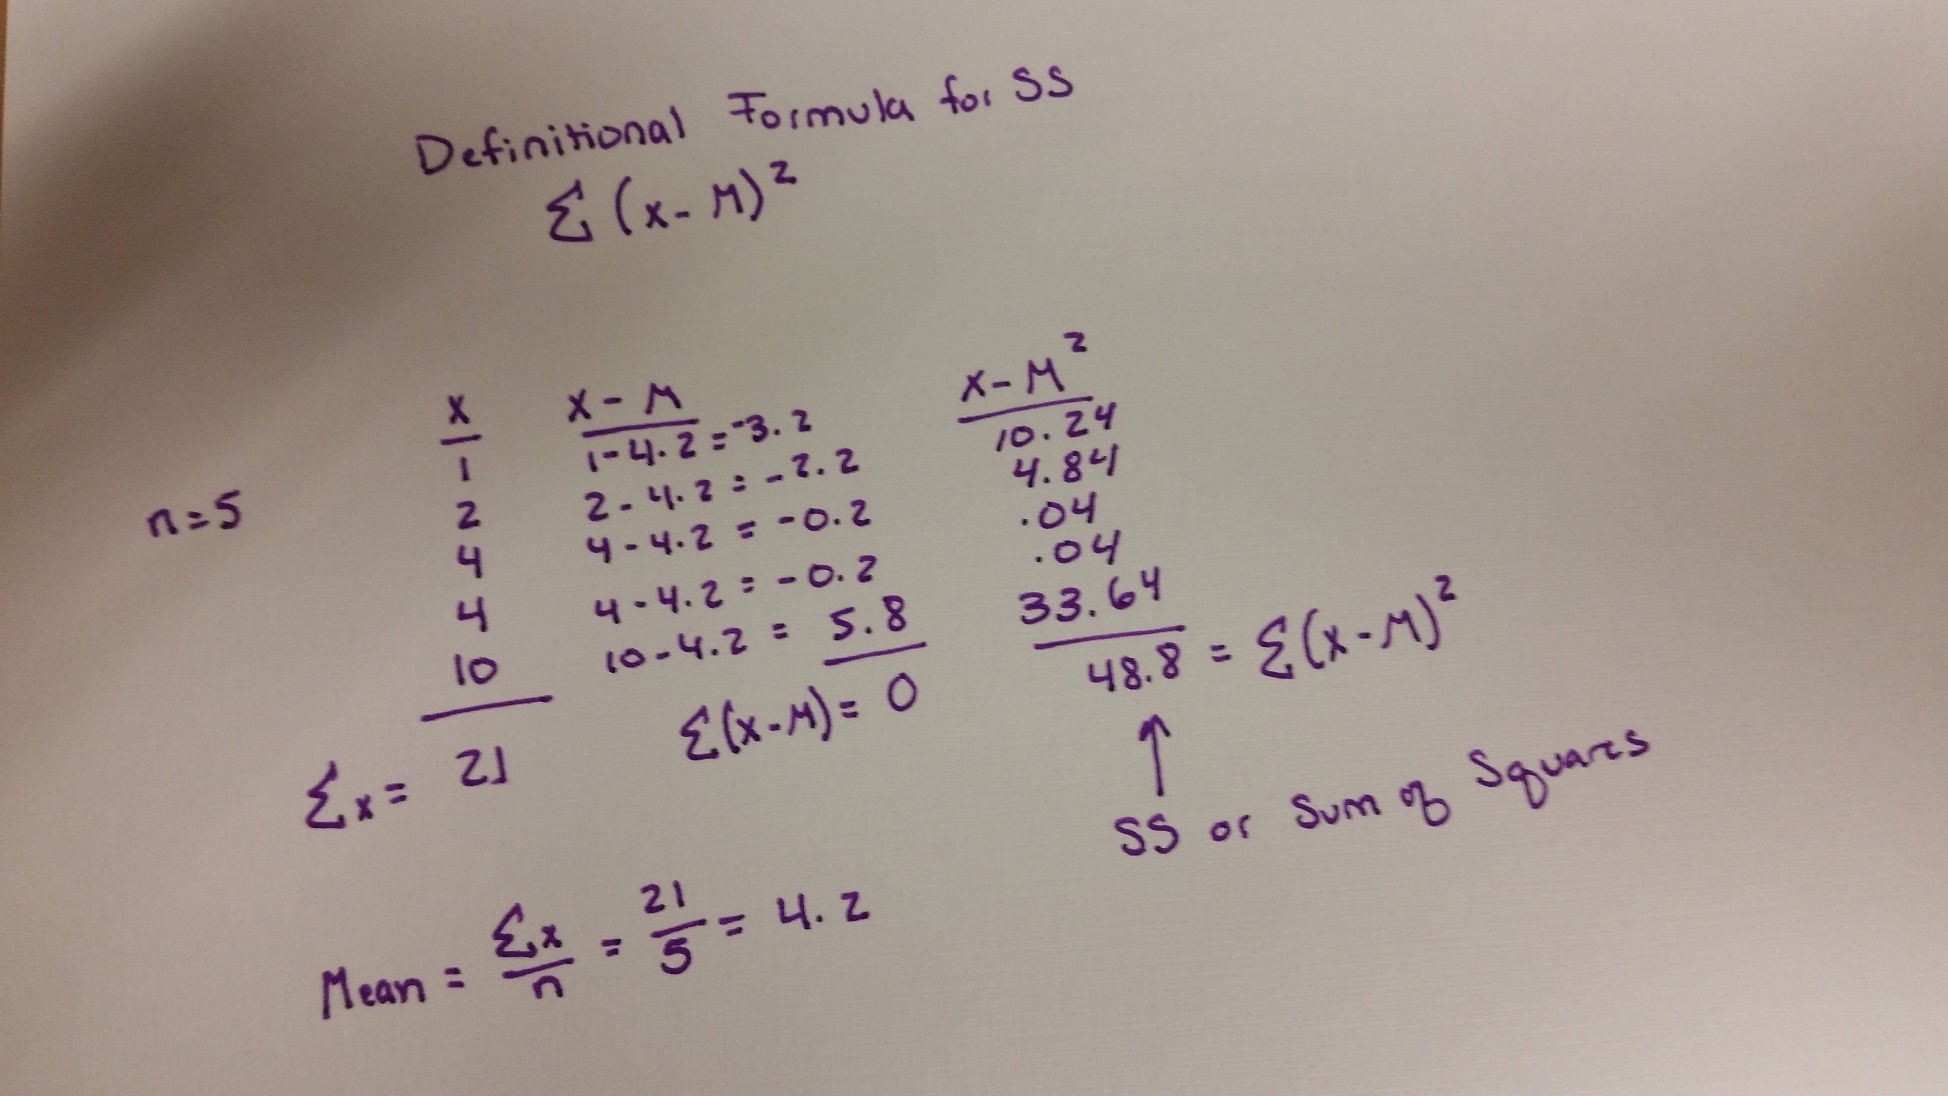 Definitional Formula for SS
Σ (x - M)²
x    x - M    x - M²
1    1 - 4.2 = -3.2    10.24
2    2 - 4.2 = -2.2    4.84
n = 5    4    4 - 4.2 = -0.2    .04
4    4 - 4.2 = -0.2    .04
10    10 - 4.2 = 5.8    33.64
Σx = 21    Σ(x - M) = 0    48.8 = Σ(x - M)²
↑
SS or Sum of Squares
Mean = Σx/n = 21/5 = 4.2